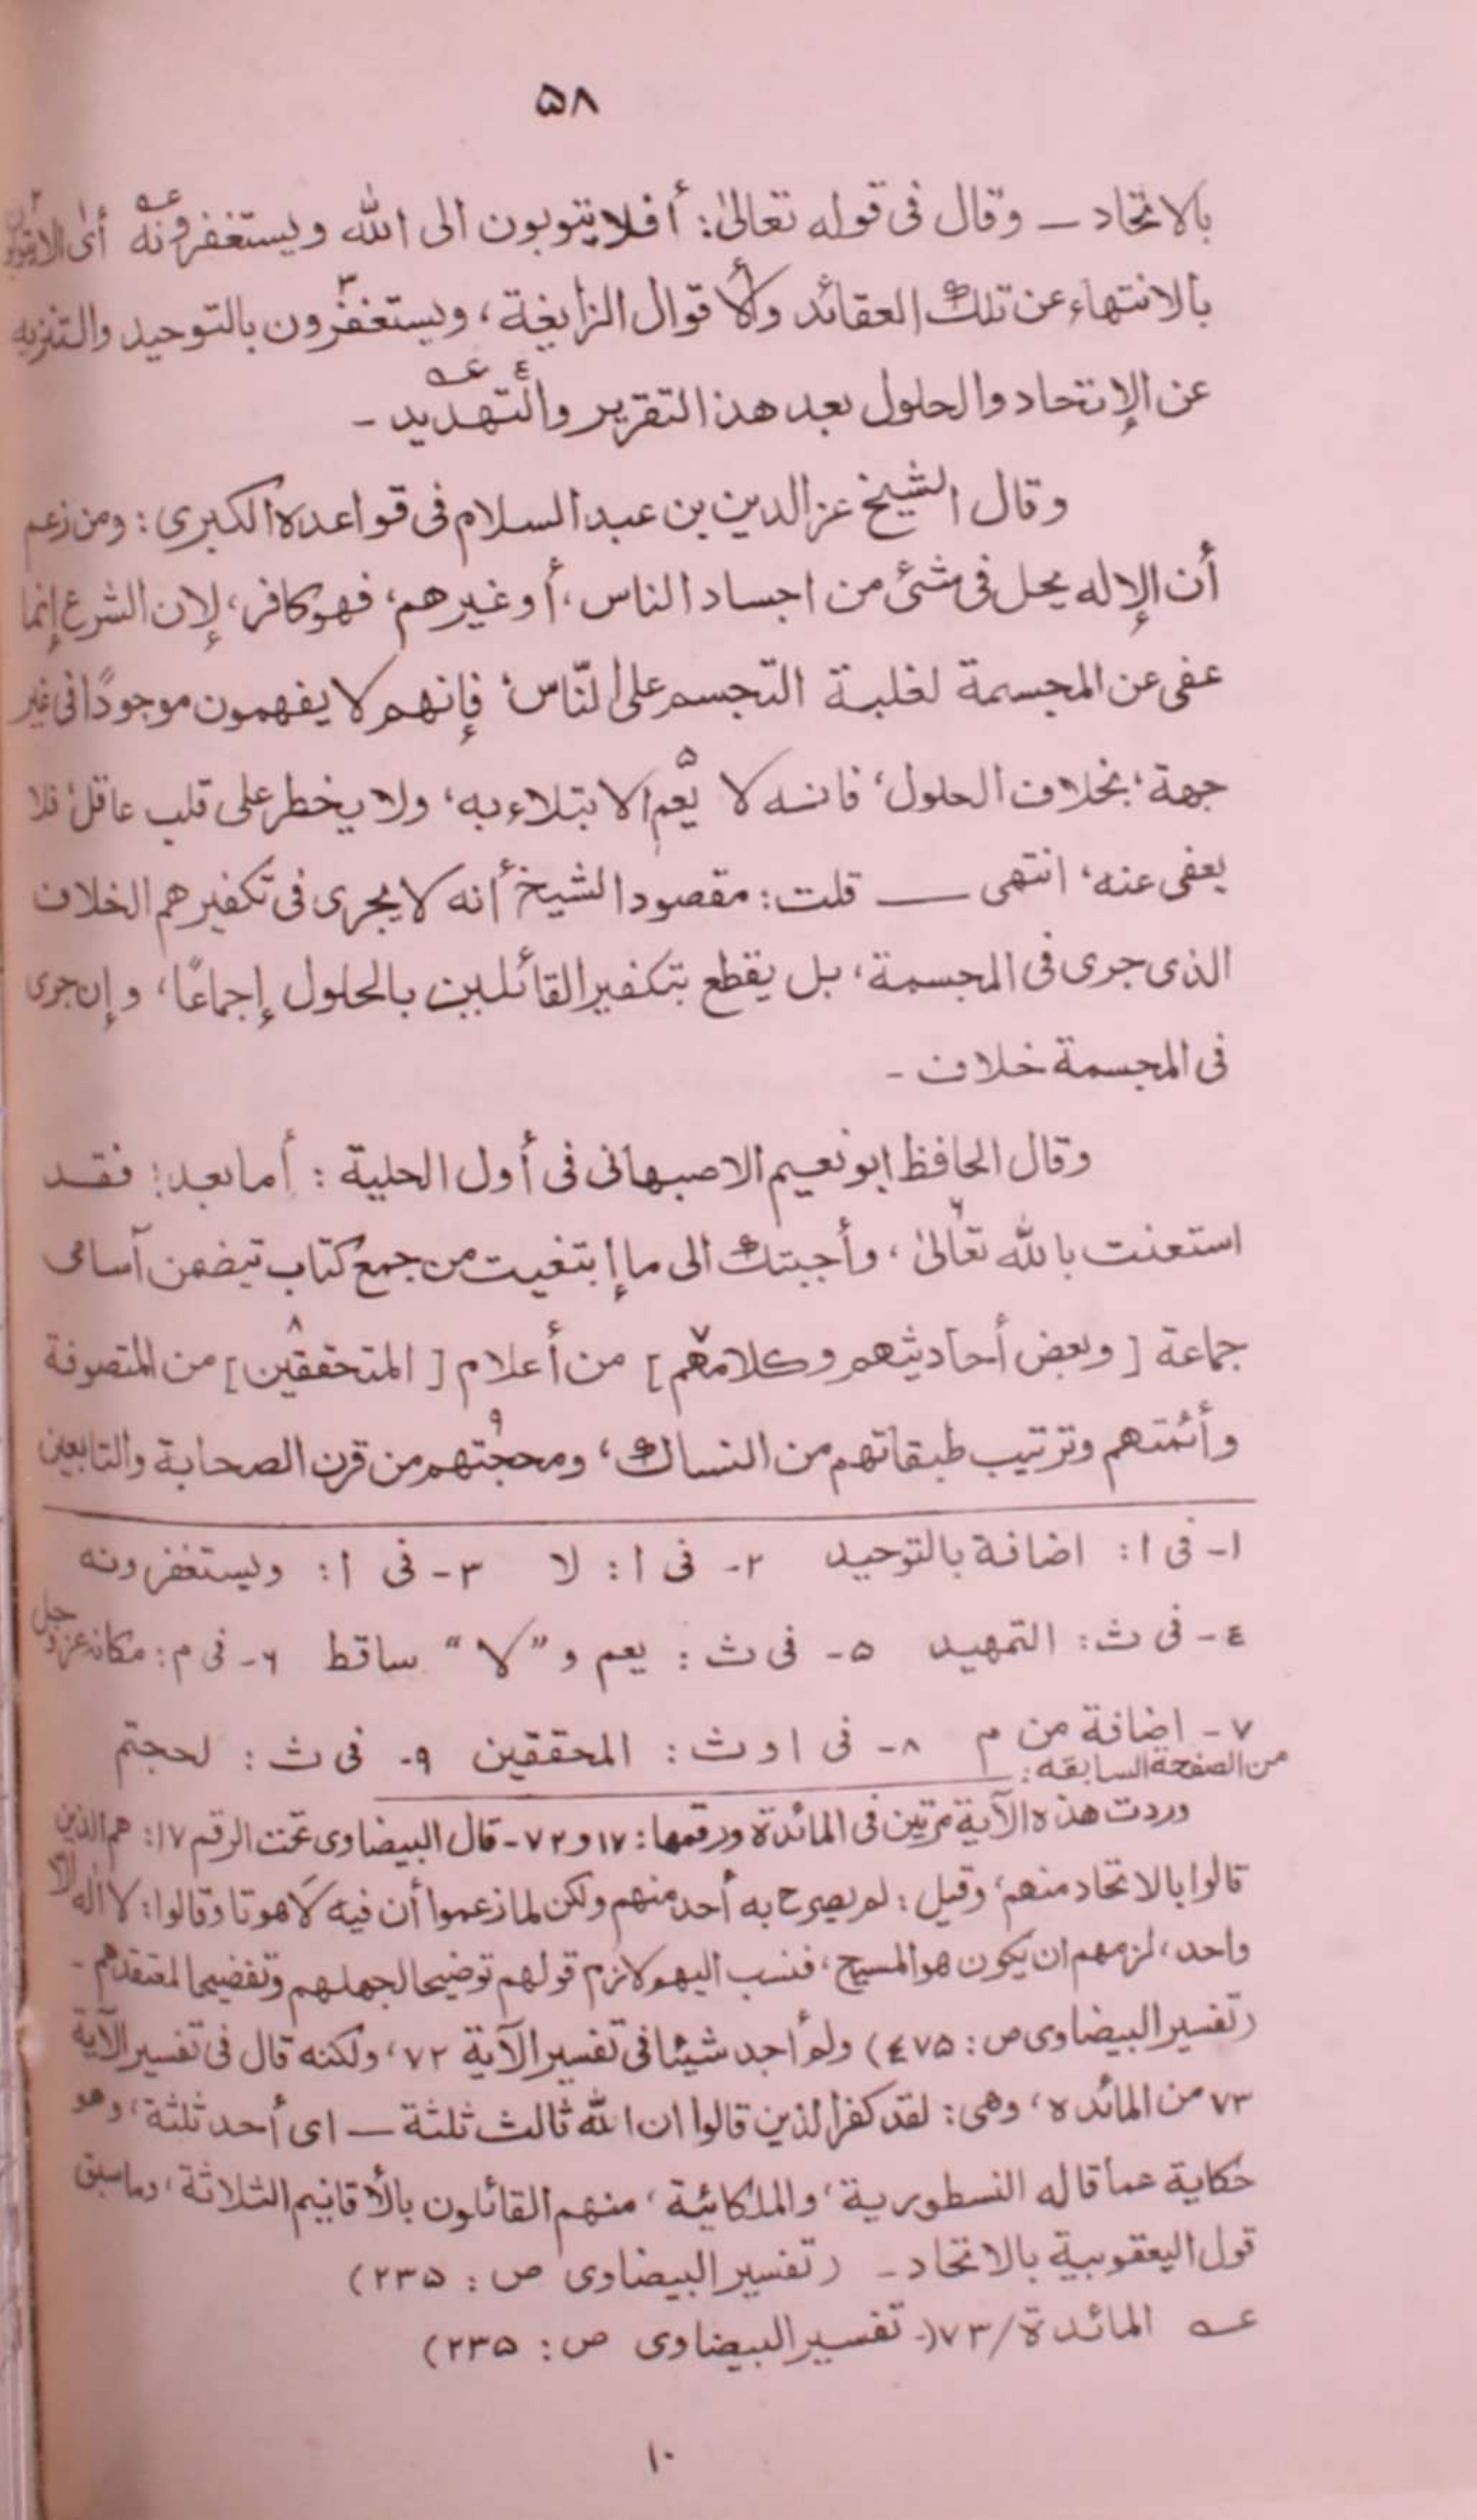 ۵۸
بالاتحاد ـ وقال فى قوله تعالىٰ: أفلا يتوبون الى الله ويستغفرونه عـه أى ألا يتوبون ٢
بالانتهاء عن تلك العقائد والأقوال الزايغة، ويستغفرون٣ بالتوحيد والتنزيه
عن الإتحاد والحلول بعد هذا التقرير والتهديد٤ عـه ـ
وقال الشيخ عز الدين بن عبد السلام فى قواعده الكبرى: ومن زعم
أن الإله يحل فى شئ من اجساد الناس، أوغيرهم، فهو كافر، لإن الشرع إنما
عفى عن المجسمة لغلبة التجسم على النّاس، فإنهم لا يفهمون موجودًا فى غير
جهة، بخلاف الحلول، فانه لا يعم۵ الابتلاء به، ولا يخطر على قلب عاقل، فلا
يعفى عنه، انتهى ــ قلت: مقصود الشيخ أنه لا يجرى فى تكفيرهم الخلاف
الذى جرى فى المجسمة، بل يقطع بتكفير القائلين بالحلول إجماعًا، وإن جرى
فى المجسمة خلاف ـ
وقال الحافظ ابو نعيم الاصبهانى فى أول الحلية: أما بعد! فقد
استعنت بالله تعالىٰ۶، وأجبتك الى ما إبتغيت من جمع كتاب تيضمن آسامى
جماعة [وبعض أحاديثهم وكلامهم٧] من أعلام [المتحققين٨] من المتصوفة
وأئمتهم وترتيب طبقاتهم من النساك، ومحجتهم٩ من قرن الصحابة والتابعين
١ـ فى ا: اضافة بالتوحيد ٢ـ فى ا: لا ٣ـ فى ا: ويستغفرونه
٤ـ فى ث: التمهيد ۵ـ فى ث: يعم و "لا" ساقط ۶ـ فى م: مكانه عز وجل
٧ـ اضافة من م ٨ـ فى ا و ث: المحققين ٩ـ فى ث: لحجتم
من الصفحة السابقه:
وردت هذه الآية مرتين فى المائدة ورقمها: ١٧ و ٧٢ ـ قال البيضاوى تحت الرقم ١٧: هم الذين
قالوا بالاتحاد منهم، وقيل: لم يصرح به أحد منهم ولكن لما زعموا أن فيه لاهوتا وقالوا: لا اله الا
واحد، لزمهم ان يكون هو المسيح، فنسب اليهم لازم قولهم توضيحا لجهلهم وتفضيحا لمعتقدهم ـ
(تفسير البيضاوى ص: ٤٧۵) ولم أجد شيئا فى تفسير الآية ٧٢، ولكنه قال فى تفسير الآية
٧٣ من المائده، وهى: لقد كفر الذين قالوا ان الله ثالث ثلثة ـ اى أحد ثلثة، وهو
حكاية عما قاله النسطورية، والملكائية، منهم القائلون بالأقانيم الثلاثة، وما سبق
قول اليعقوبية بالاتحاد ـ (تفسير البيضاوى ص: ٢٣۵)
عـه المائدة/٧٣(ـ تفسير البيضاوى ص: ٢٣۵)
١٠